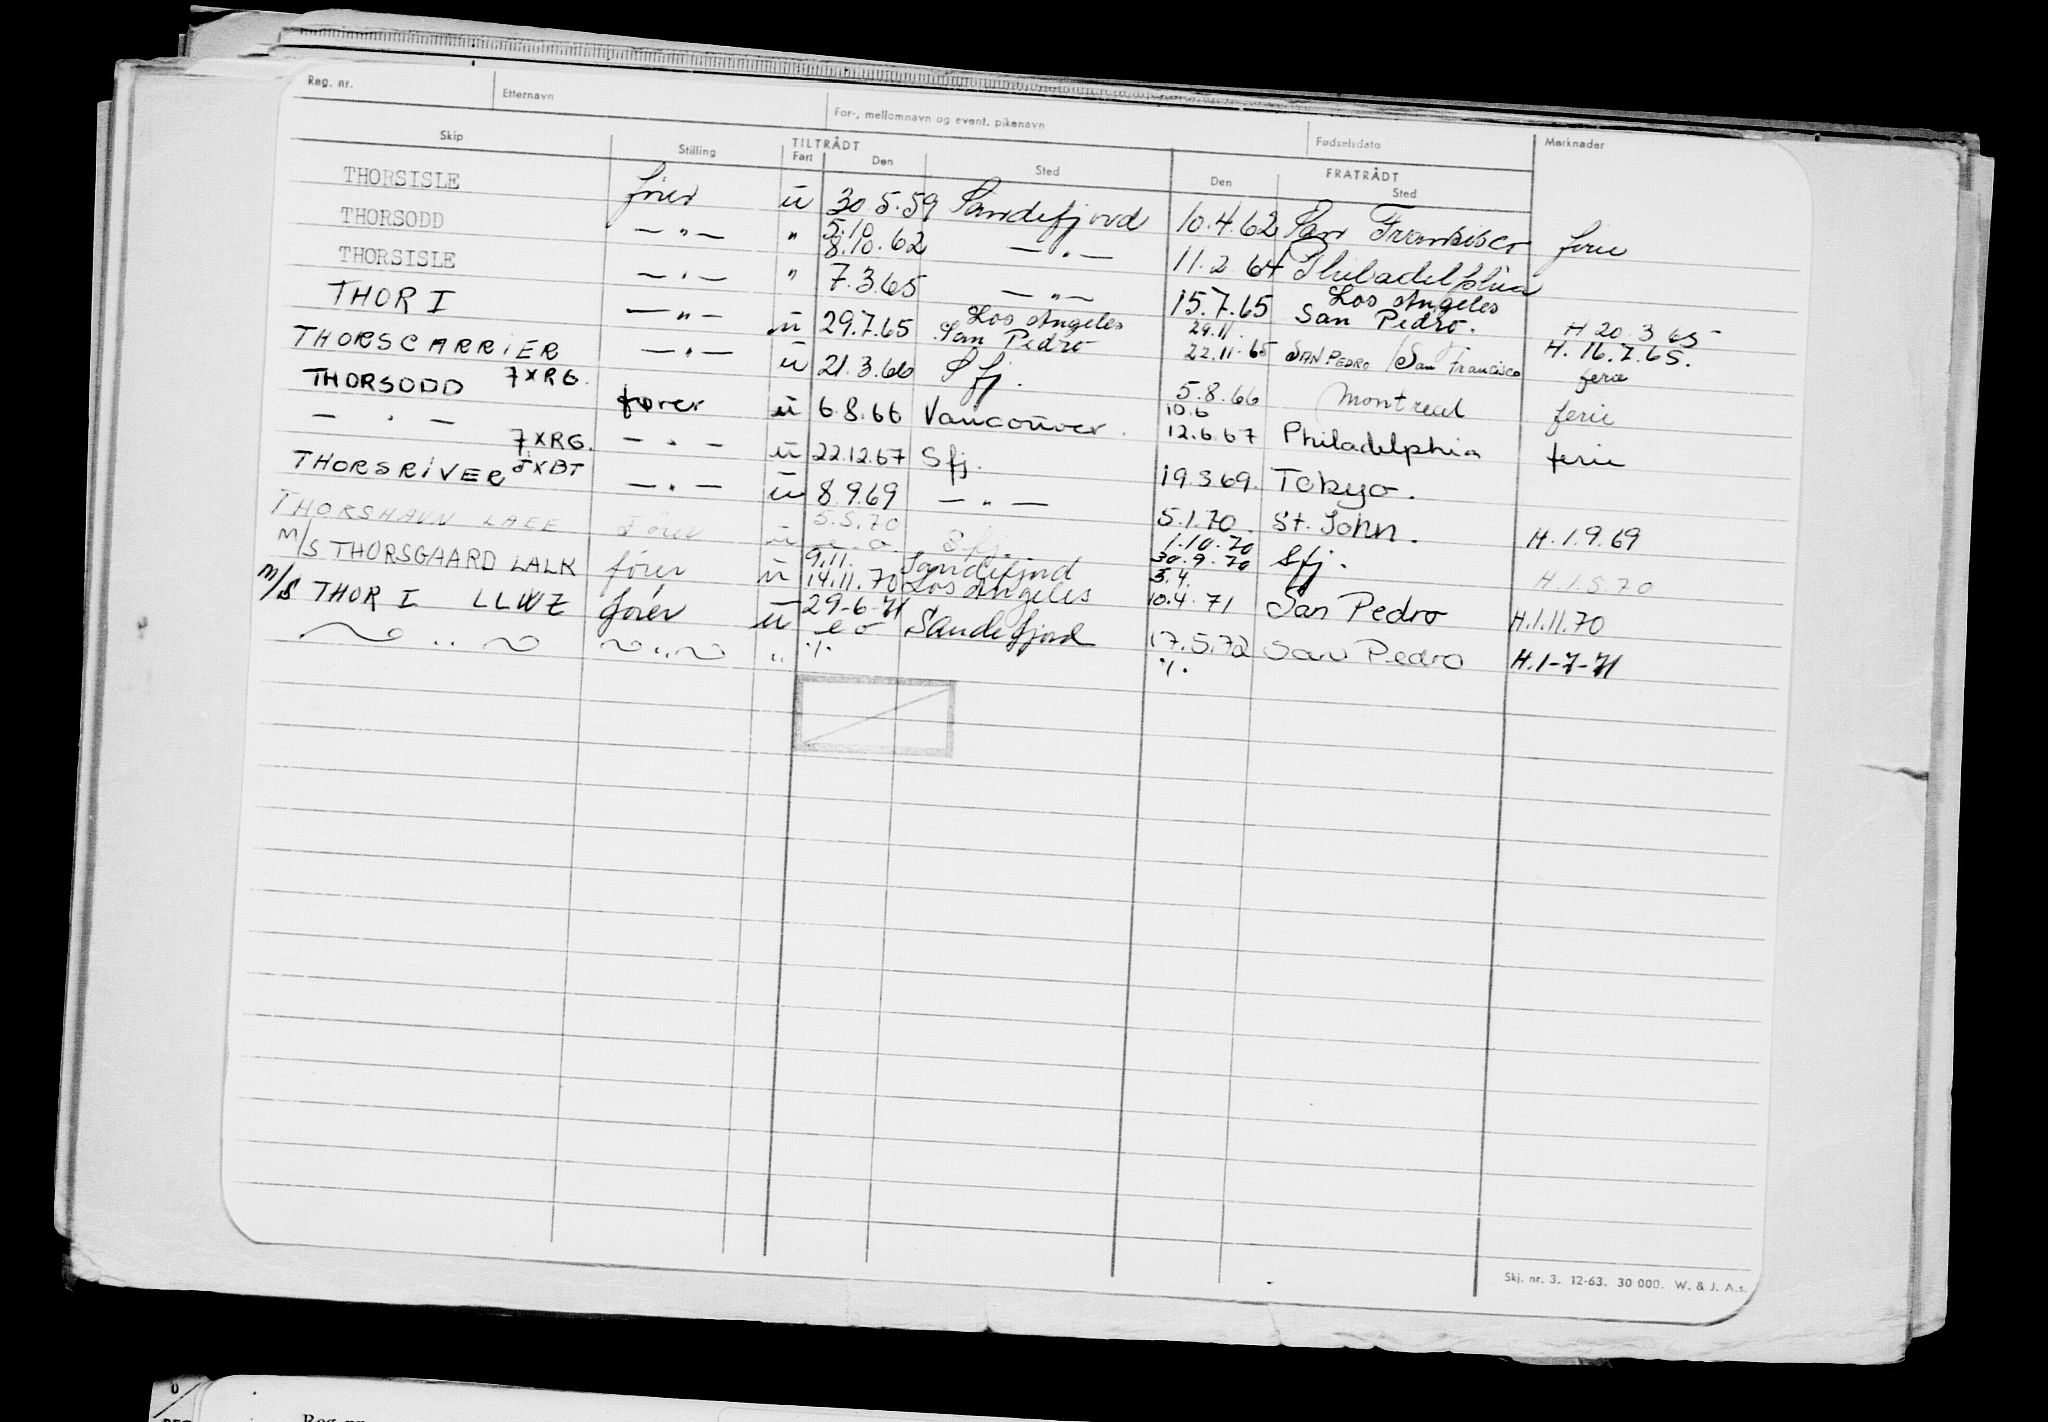 Reg. nr. Etternavn For-, mellomnavn og event. pikenavn Fødselsdato Merknader
Skip Stilling TILTRÅDT FRATRÅDT
Fart Den Sted Den Sted
THORSISLE fører u 30 5.59 Sandefjord 10.4.62 San Fransisco ferie
THORSODD — " — " 5.10 8.10.62 — " — 11.2.64 Philadelphia
THORSISLE — " — " 7.3.65 — " — 15.7.65 Los Angeles San Pedro. H 20.3 65
THOR I — " — u 29.7.65 Los Angeles San Pedro 29.11. 22.11.65 SAN PEDRO / San Francisco H. 16.7.65. ferie
THORSCARRIER — " — u 21.3.66 Sfj. 5.8.66 Montreal ferie
THORSODD 7XRG. fører u 6.8.66 Vancouver. 10.6 12.6.67 Philadelphia ferie
— " — 7XRG. — " — u 22.12.67 Sfj. 19.3 69. Tokyo.
THORSRIVER 5XBT — " — u 8.9.69 — " — 5.1.70. St. John. H.1.9.69
THORSHAVN LAEE Fører u 5.5.70 e.o. Sfj. 1.10.70 30.9.70 Sfj. H.1.5.70
M/S THORSGAARD LALK fører u 9.11. 14.11.70 Sandefjord Los Angeles 3.4. 10.4.71 San Pedro H.1.11.70
M/S THOR I LLWZ fører u 29-6-71 e o Sandefjord 17.5.72 San Pedro H.1-7-71
" " " ./. ./.
Skj. nr. 3. 12-63. 30 000. W. & J. A.s.
0
Reg. nr.